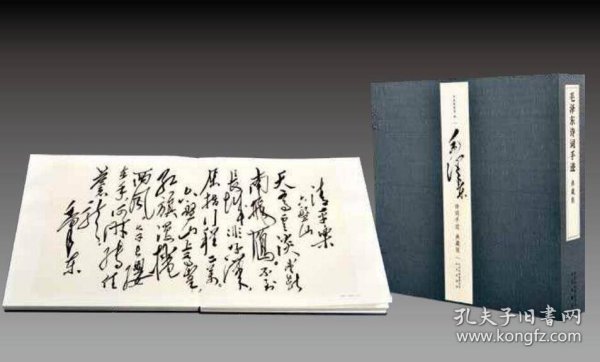 清平乐
六盘山
天高云淡 望断
南飞雁 不到
长城非好汉
屈指行程二万
六盘山上高峰
红旗漫卷
西风 今日长缨
在手 何时缚住
苍龙
毛泽东
毛泽东
诗词手迹 典藏版
毛泽东诗词手迹 典藏版
孔夫子旧书网
www.kongfz.com